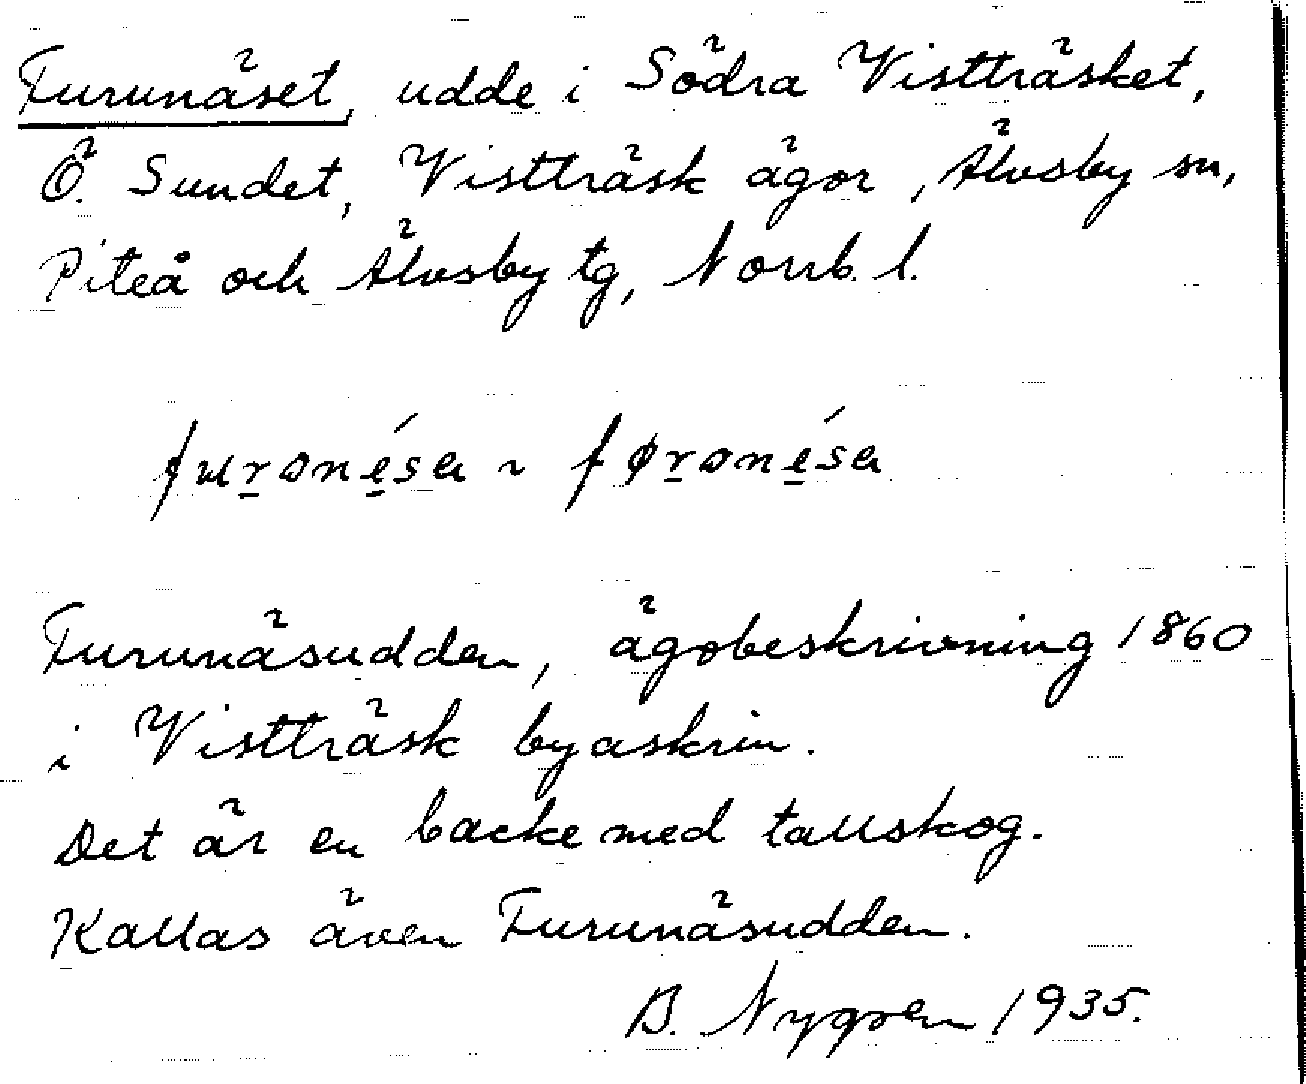 Furunäset, udde i Södra Vistträsket,
Ö. Sundet, Vistträsk ägor, Älvsby sn,
Piteå och Älvsby tg, Norrb. l.
furonésa ~ føronésa
Furunäsudden, ägobeskrivning 1860
i Vistträsk byaskrin.
Det är en backe med tallskog.
Kallas även Furunäsudden.
B. Nygren 1935.